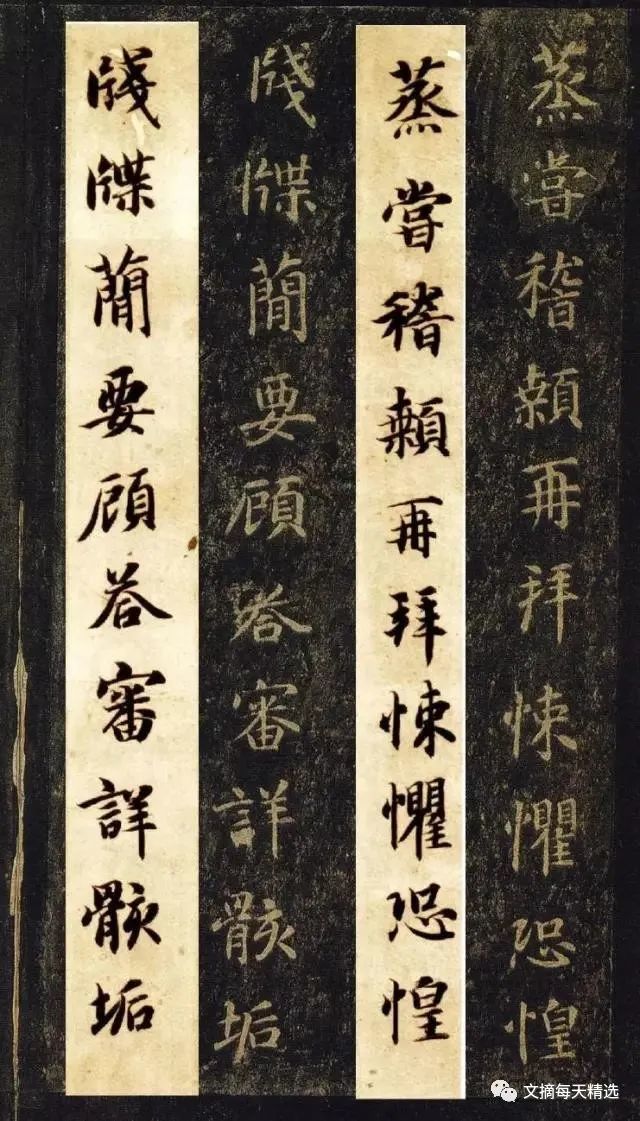 蒸嘗稽顙再拜悚懼恐惶
蒸嘗稽顙再拜悚懼恐惶
牋牒簡要顧荅審詳骸垢
牋牒簡要顧荅審詳骸垢
文摘每天精选